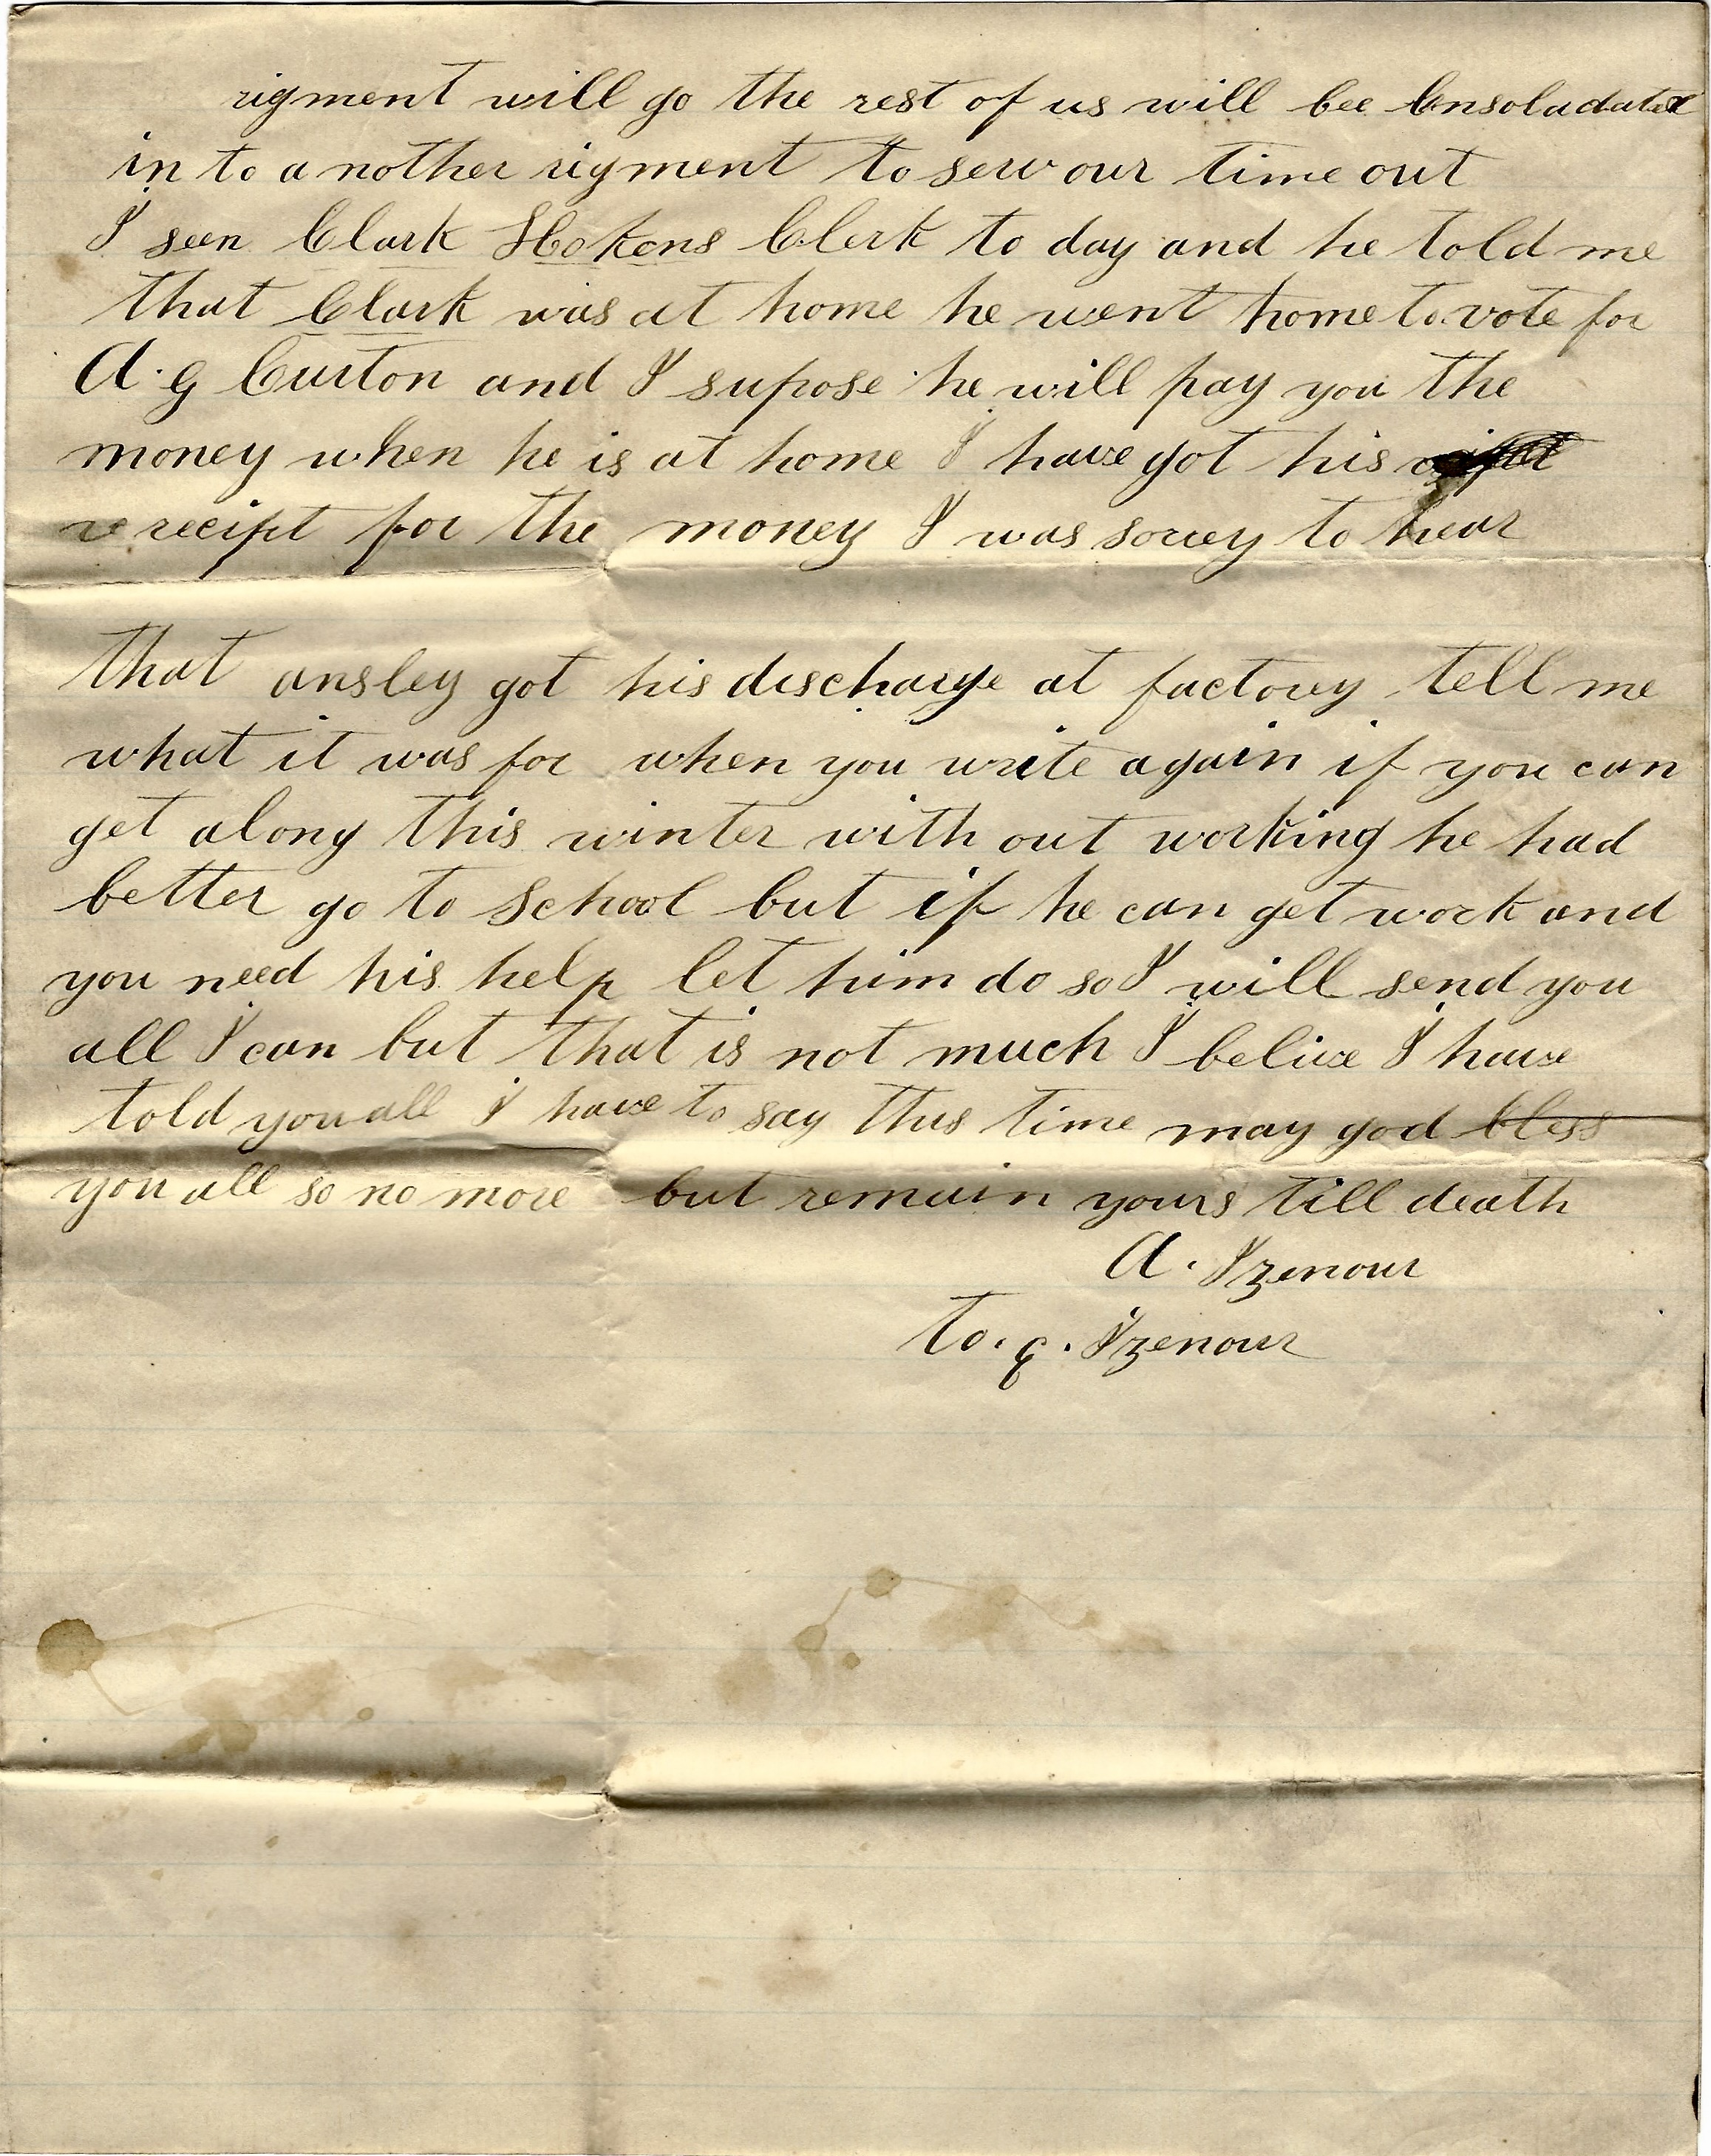 rigment will go the rest of us will bee Consoladated
in to a nother rigment to serv our time out
I seen Clark Hokens Clerk to day and he told me
that Clark was at home he went home to vote for
A. G Curton and I supose he will pay you the
money when he is at home I have got his
recipt for the money I was sorrey to hear
that ansley got his discharge at factorey tell me
what it was for when you write again if you can
get along this winter with out working he had
better go to school but if he can get work and
you need his help let him do so I will send you
all I can but that is not much I belive I have
told you all I have to say this time may god bless
you all so no more but remain yours till death
A. Izenour
to. . Izenour